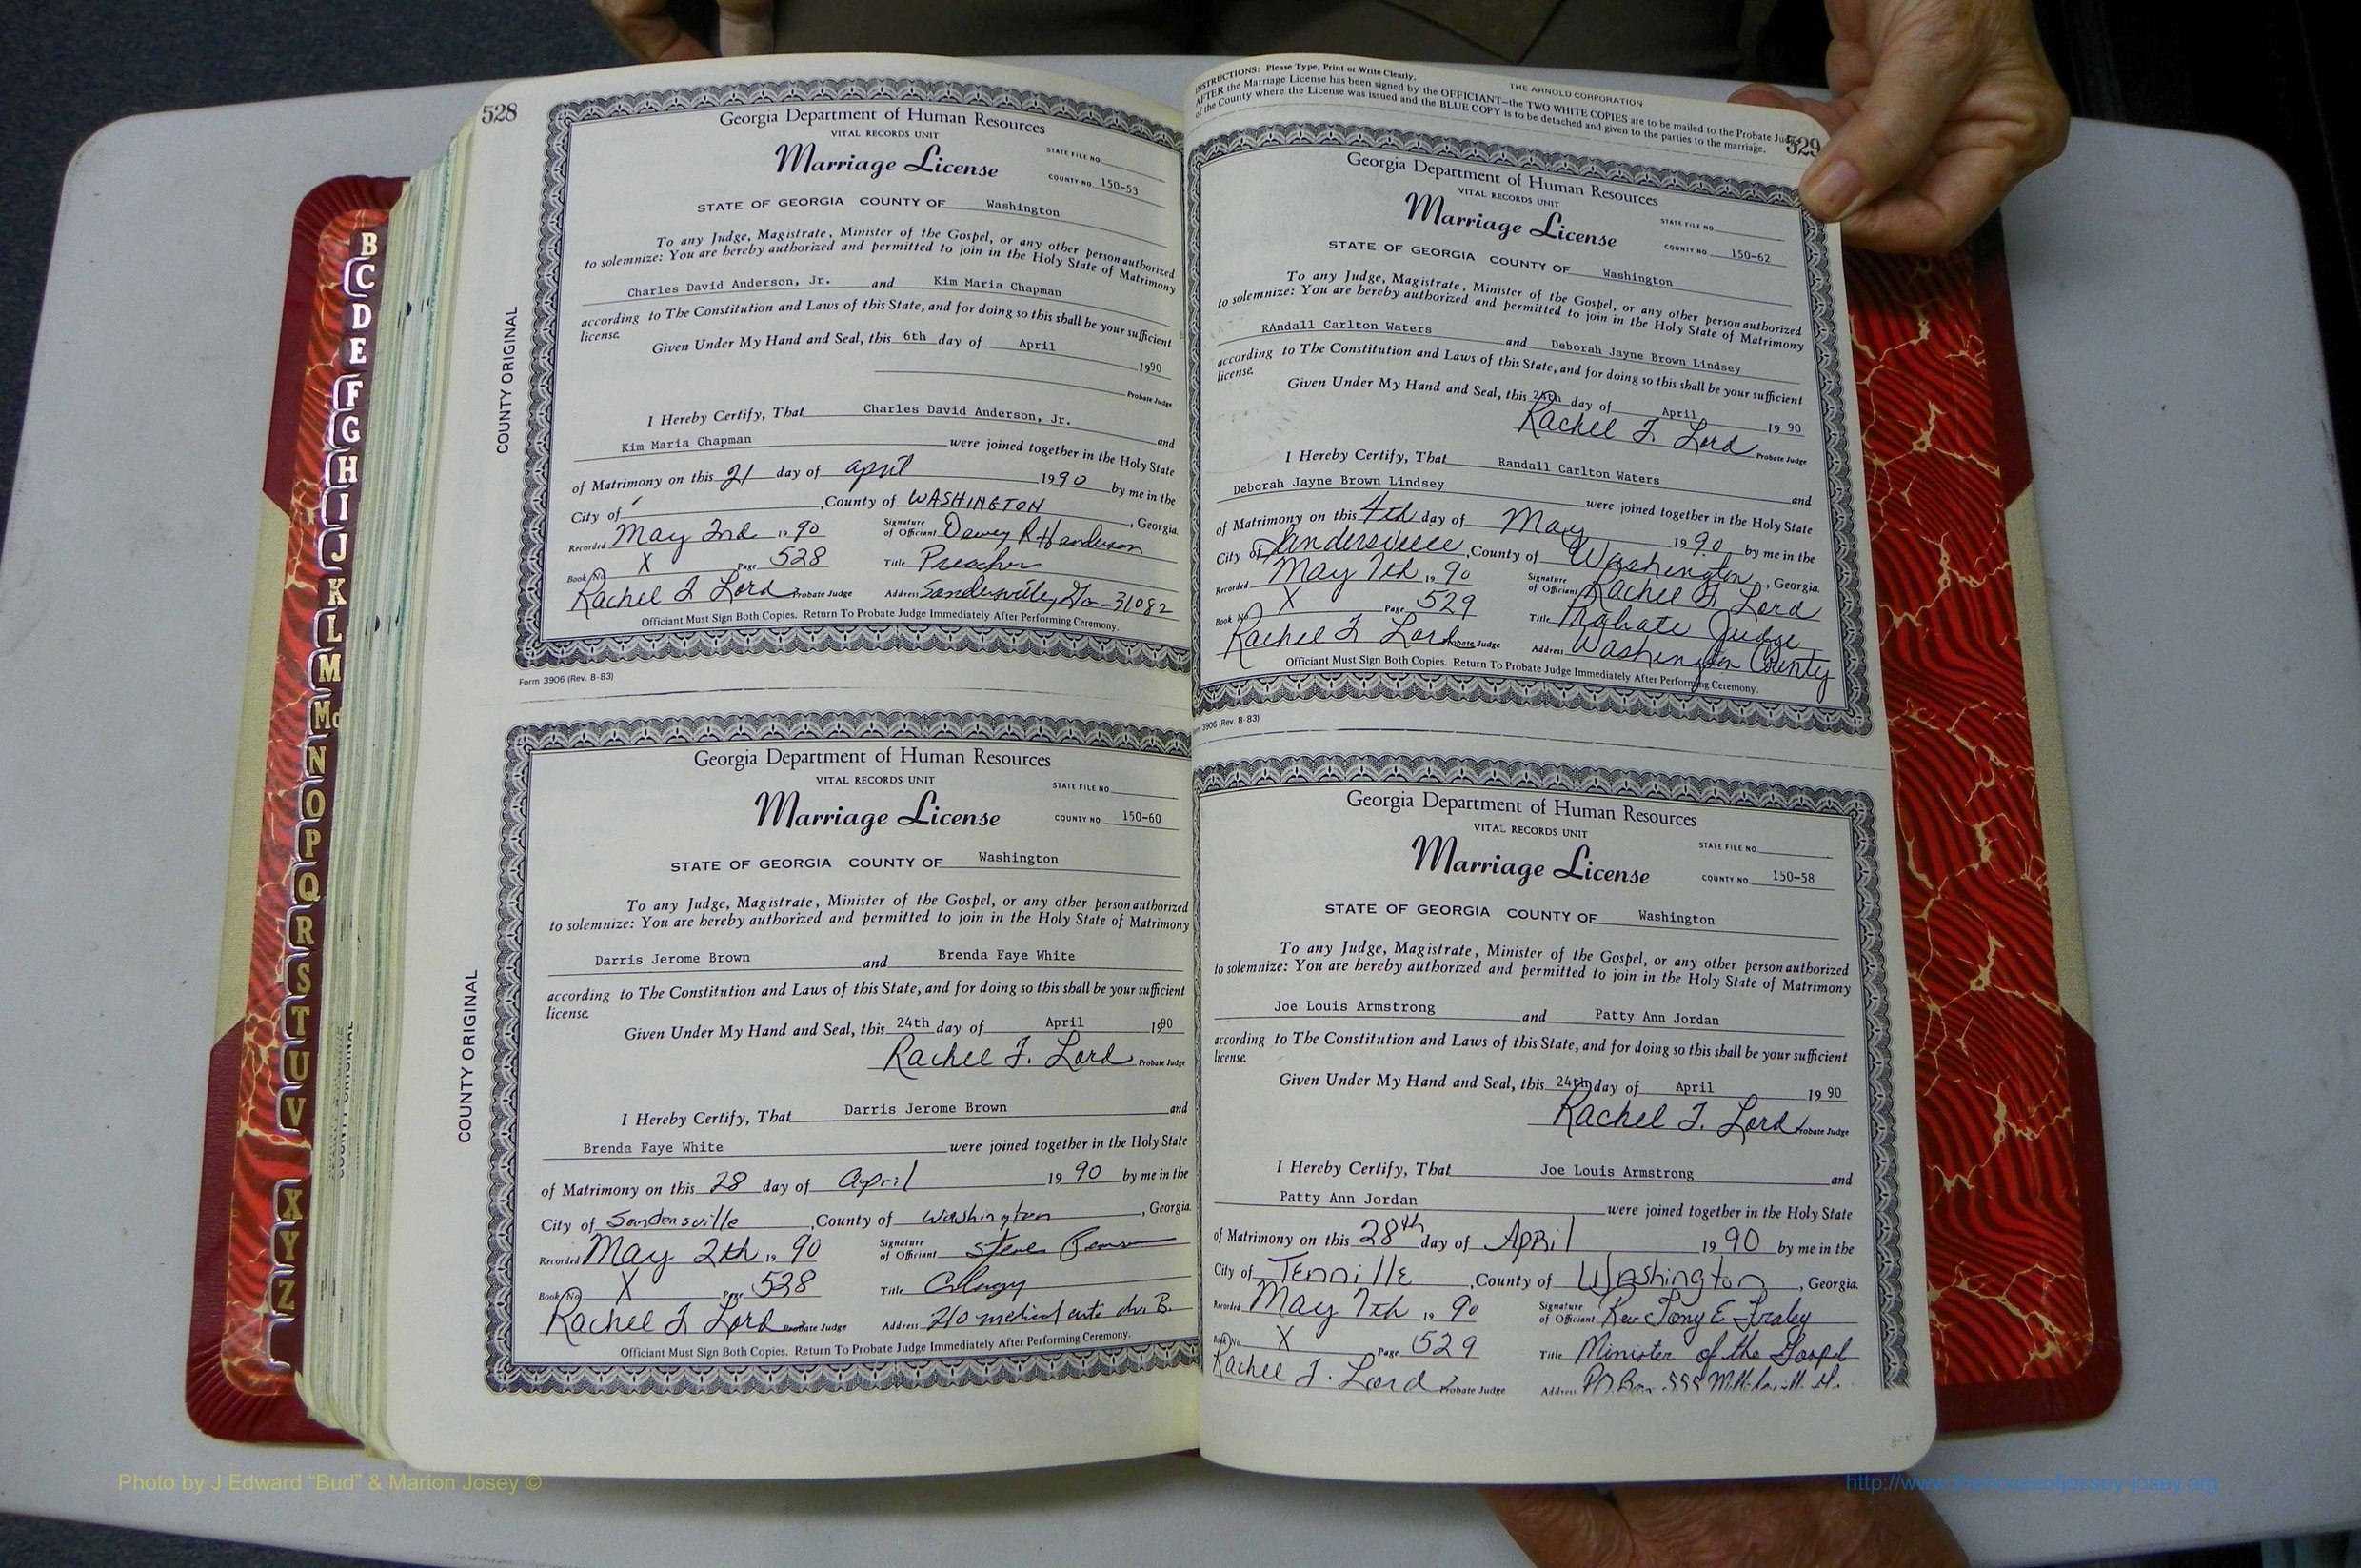 528
COUNTY ORIGINAL
Georgia Department of Human Resources
VITAL RECORDS UNIT
Marriage License
STATE FILE NO.
COUNTY NO. 150-53
STATE OF GEORGIA COUNTY OF Washington
To any Judge, Magistrate, Minister of the Gospel, or any other person authorized
to solemnize: You are hereby authorized and permitted to join in the Holy State of Matrimony
Charles David Anderson, Jr. and Kim Maria Chapman
according to The Constitution and Laws of this State, and for doing so this shall be your sufficient
license.
Given Under My Hand and Seal, this 6th day of April 1990
Probate Judge
I Hereby Certify, That Charles David Anderson, Jr. and
Kim Maria Chapman were joined together in the Holy State
of Matrimony on this 21 day of april 1990 by me in the
City of , County of WASHINGTON , Georgia.
Recorded May 2nd 1990 Signature of Officiant Dewey R.
Book No. X Page 528 Title Preacher
Rachel F Lord Probate Judge Address Sandersville, Ga-31082
Officiant Must Sign Both Copies. Return To Probate Judge Immediately After Performing Ceremony.
Form 3906 (Rev. 8-83)
COUNTY ORIGINAL
Georgia Department of Human Resources
VITAL RECORDS UNIT
Marriage License
STATE FILE NO.
COUNTY NO. 150-60
STATE OF GEORGIA COUNTY OF Washington
To any Judge, Magistrate, Minister of the Gospel, or any other person authorized
to solemnize: You are hereby authorized and permitted to join in the Holy State of Matrimony
Darris Jerome Brown and Brenda Faye White
according to The Constitution and Laws of this State, and for doing so this shall be your sufficient
license.
Given Under My Hand and Seal, this 24th day of April 1990
Rachel F. Lord Probate Judge
I Hereby Certify, That Darris Jerome Brown and
Brenda Faye White were joined together in the Holy State
of Matrimony on this 28 day of april 1990 by me in the
City of Sandersville , County of Washington , Georgia.
Recorded May 2th 1990 Signature of Officiant Steve
Book No. X Page 528 Title
Rachel F Lord Probate Judge Address 710 medical arts dr. B.
Officiant Must Sign Both Copies. Return To Probate Judge Immediately After Performing Ceremony.
INSTRUCTIONS: Please Type, Print or Write Clearly.
THE ARNOLD CORPORATION
AFTER the Marriage License has been signed by the OFFICIANT—the TWO WHITE COPIES are to be mailed to the Probate
of the County where the License was issued and the BLUE COPY is to be detached and given to the parties to the marriage.
529
Georgia Department of Human Resources
VITAL RECORDS UNIT
Marriage License
STATE FILE NO.
COUNTY NO. 150-62
STATE OF GEORGIA COUNTY OF Washington
To any Judge, Magistrate, Minister of the Gospel, or any other person authorized
to solemnize: You are hereby authorized and permitted to join in the Holy State of Matrimony
RAndall Carlton Waters and Deborah Jayne Brown Lindsey
according to The Constitution and Laws of this State, and for doing so this shall be your sufficient
license.
Given Under My Hand and Seal, this 25th day of April 1990
Rachel F. Lord Probate Judge
I Hereby Certify, That Randall Carlton Waters and
Deborah Jayne Brown Lindsey were joined together in the Holy State
of Matrimony on this 4th day of May 1990 by me in the
City of Sandersville , County of Washington , Georgia.
Recorded May 7th 1990 Signature of Officiant Rachel F. Lord
Book No. X Page 529 Title Probate Judge
Rachel F Lord Probate Judge Address Washington County
Officiant Must Sign Both Copies. Return To Probate Judge Immediately After Performing Ceremony.
3906 (Rev. 8-83)
Georgia Department of Human Resources
VITAL RECORDS UNIT
Marriage License
STATE FILE NO.
COUNTY NO. 150-58
STATE OF GEORGIA COUNTY OF Washington
To any Judge, Magistrate, Minister of the Gospel, or any other person authorized
to solemnize: You are hereby authorized and permitted to join in the Holy State of Matrimony
Joe Louis Armstrong and Patty Ann Jordan
according to The Constitution and Laws of this State, and for doing so this shall be your sufficient
license.
Given Under My Hand and Seal, this 24th day of April 1990
Rachel F. Lord Probate Judge
I Hereby Certify, That Joe Louis Armstrong and
Patty Ann Jordan were joined together in the Holy State
of Matrimony on this 28th day of APRil 1990 by me in the
City of Tennille , County of Washington , Georgia.
Recorded May 7th 1990 Signature of Officiant Rev Tony E Fraley
Book No. X Page 529 Title Minister of the Gospel
Rachel F. Lord Probate Judge Address P.O. Box 555
B
C
D
E
F
G
H
I
J
K
L
M
Mc
N
O
P
Q
R
S
T
U
V
X
Y
Z
Photo by J Edward “Bud” & Marion Josey ©
http://www.thehouseofjossey-josey.org